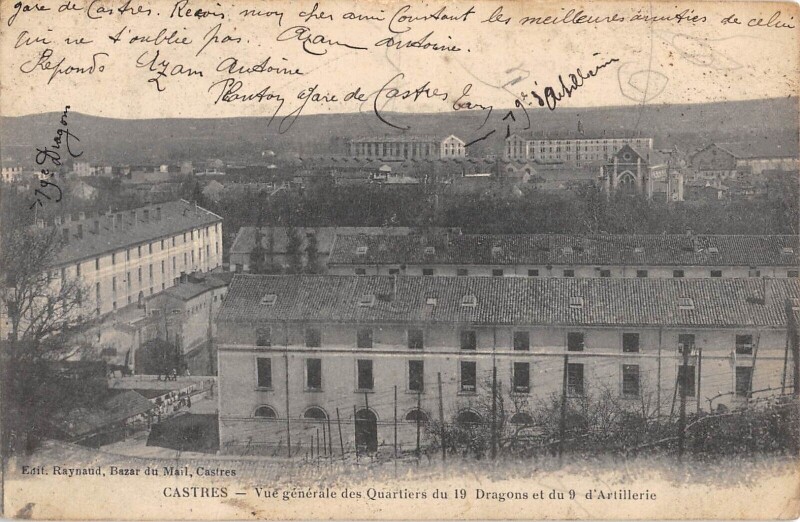 gare de Castres. Reçois mon cher ami Constant les meilleures amitiés de celui
qui ne t'oublie pas. Azam Antoine.
Réponds Azam Antoine
2
gare de Castres
gie d'Artillerie
Dragons
Edit. Raynaud, Bazar du Mail, Castres
CASTRES — Vue générale des Quartiers du 19 Dragons et du 9 d'Artillerie